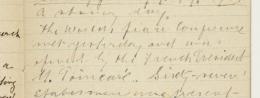 a stormy day.
The World's Peace Conference
met yesterday and was
opened by the French President
M. Poincaré. Sixty-seven
statesmen were present